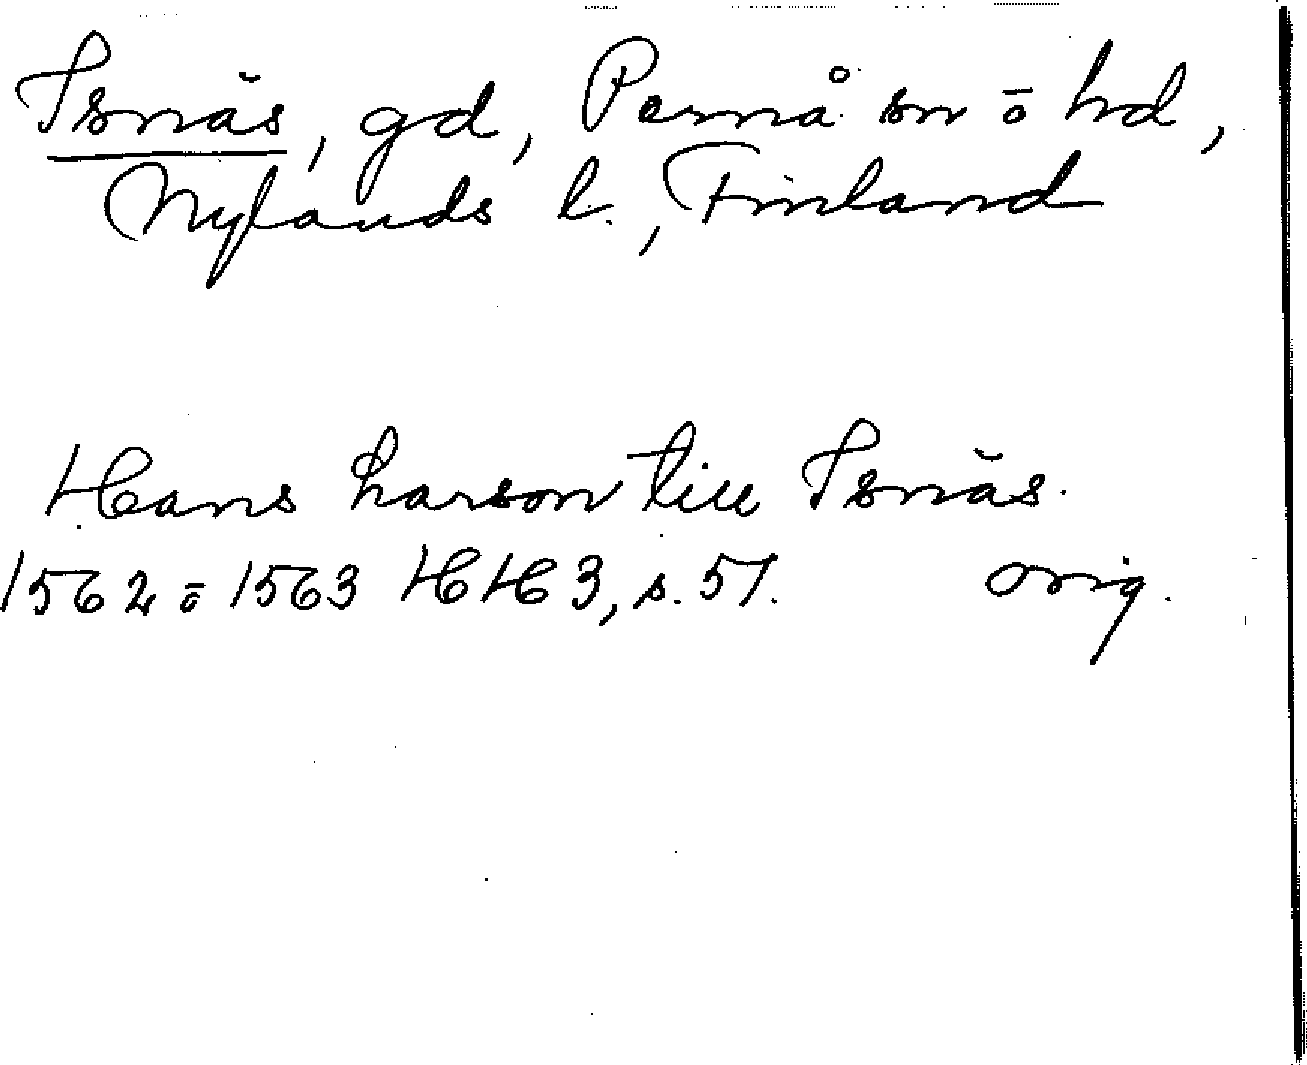 Isnäs, gd, Pernå sn o hd,
Nylands l., Finland
Hans Larson till Isnäs.
1562 o 1563 HH 3, s. 51. orig.